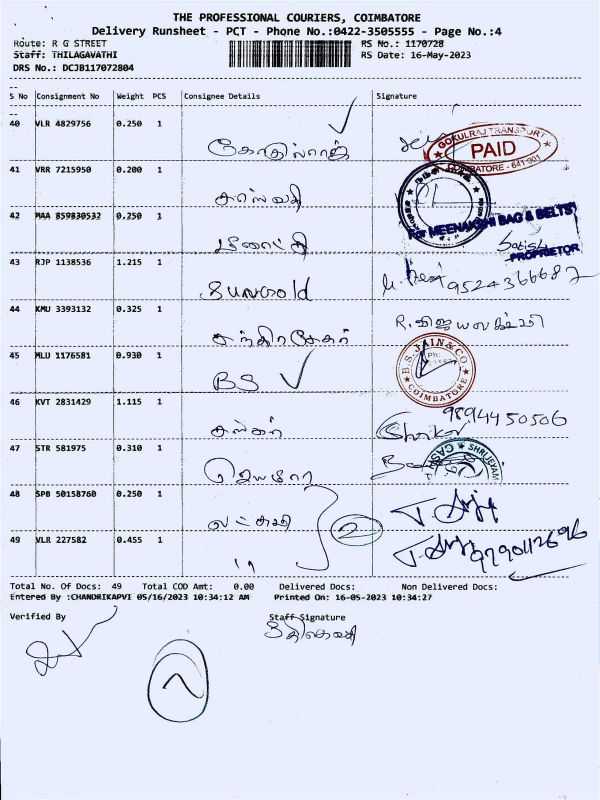 THE PROFESSIONAL COURIERS, COIMBATORE
Delivery Runsheet - PCT - Phone No.:0422-3505555 - Page No.:4
Route: R G STREET RS No.: 1170728
Staff: THILAGAVATHI RS Date: 16-May-2023
DRS No.: DCJB117072804
S No Consignment No Weight PCS Consignee Details Signature
40 VLR 4829756 0.250 1
GOKULRAJ TRANSPORT PAID COIMBATORE - 641 001
41 VRR 7215950 0.200 1 சரஸ்வதி
42 MAA 859830532 0.250 1 மீனாட்சி
For MEENAKSHI BAG & BELTS
Satish
PROPRIETOR
43 RJP 1138536 1.215 1 9524366687
44 KMU 3393132 0.325 1 சந்திரசேகர் R. விஜயலக்ஷ்மி
45 MLU 1176581 0.930 1 BS B.S. JAIN & CO. COIMBATORE
46 KVT 2831429 1.115 1 9894450506
47 STR 581975 0.310 1
48 SPB 50158760 0.250 1 லட்சுமி 2
49 VLR 227582 0.455 1 " 9790112696
Total No. Of Docs: 49 Total COD Amt: 0.00 Delivered Docs: Non Delivered Docs:
Entered By :CHANDRIKAPVI 05/16/2023 10:34:12 AM Printed On: 16-05-2023 10:34:27
Verified By Staff Signature
திலகவதி